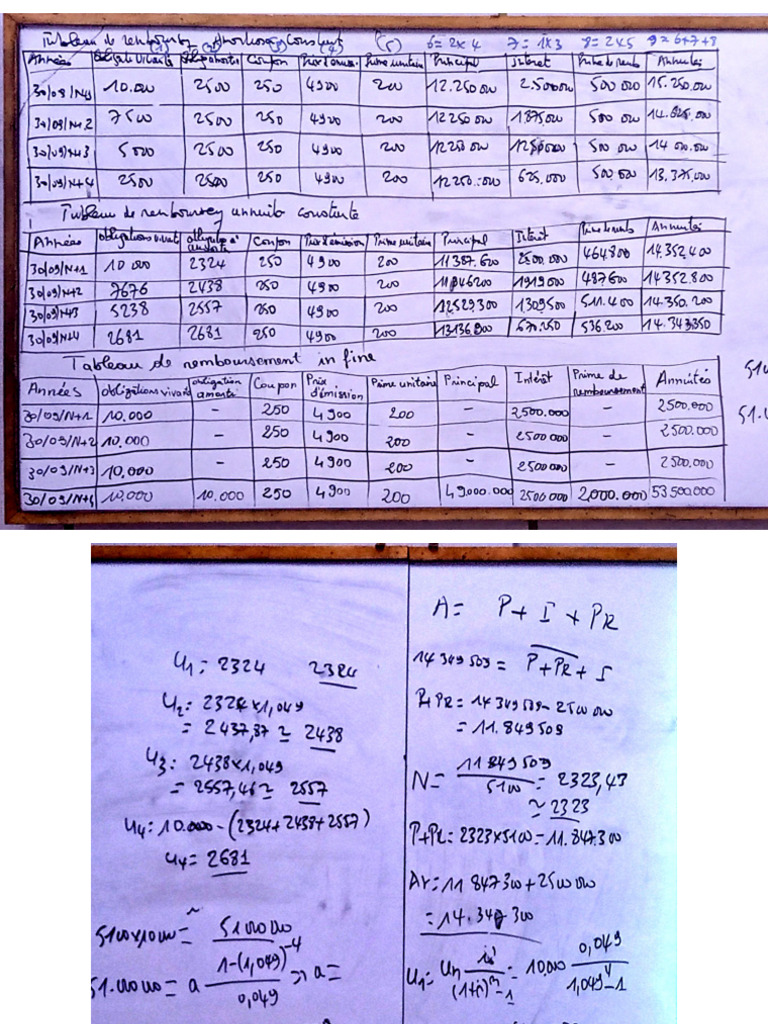 Tableau de rembours Amortissey constant
(1) (2) (3) (4) (5) 6=2x4 7=1x3 8=2x5 9=6+7+8
Années | Oblig Vivante | Oblig amorties | Coupon | Prix d'émiss. | Prime unitaire | Principal | Interêt | Prime de remb | Annuités
30/08/N+1 | 10.000 | 2500 | 250 | 4900 | 200 | 12.250.000 | 2.500.000 | 500 000 | 15.250.000
30/09/N+2 | 7500 | 2500 | 250 | 4900 | 200 | 12250 000 | 1875.000 | 500 000 | 14.625.000
30/09/N+3 | 5000 | 2500 | 250 | 4900 | 200 | 12250 000 | 1250 000 | 500 000 | 14 000.000
30/09/N+4 | 2500 | 2500 | 250 | 4900 | 200 | 12250.000 | 625.000 | 500 000 | 13.375.000
Tableau de remboursey annuité constante
Années | Obligations vivant | obligatio à amortir | Coupon | Prix d'émission | Prime unitaire | Principal | Interêt | Prime de remb | Annuités
30/09/N+1 | 10 000 | 2324 | 250 | 4900 | 200 | 11387.600 | 2500.000 | 464800 | 14.352.400
30/09/N+2 | 7676 | 2438 | 250 | 4900 | 200 | 11946200 | 1919000 | 487600 | 14352.800
30/09/N+3 | 5238 | 2557 | 250 | 4900 | 200 | 12529.300 | 1309500 | 511.400 | 14.350.200
30/09/N+4 | 2681 | 2681 | 250 | 4900 | 200 | 13136.900 | 670.250 | 536.200 | 14.343350
Tableau de remboursement in fine
Années | obligations vivant | obligation amortie | Coupon | Prix d'émission | Prime unitaire | Principal | Intérêt | Prime de remboursement | Annuités
30/09/N+1 | 10.000 | - | 250 | 4900 | 200 | - | 2500.000 | - | 2500.000
30/09/N+2 | 10.000 | - | 250 | 4900 | 200 | - | 2500.000 | - | 2500.000
30/09/N+3 | 10.000 | - | 250 | 4900 | 200 | - | 2500.000 | - | 2500.000
30/09/N+4 | 10.000 | 10.000 | 250 | 4900 | 200 | 49.000.000 | 2500 000 | 2,000.000 | 53500.000
U1 = 2324 2324
U2 = 2324x1,049
= 2437,87 ≃ 2438
U3: 2438x1,049
= 2557,46 ≃ 2557
U4: 10.000 - (2324+2438+2557)
U4 = 2681
5100x10000 = 51000000
51.000000 = a (1-(1,049)^-4)/0,049 => a =
A = P + I + PR
14 349 509 = P+PR + I
P+PR = 14349509 - 2500 000
= 11.849509
N = 11849509/5100 = 2323,43
≃ 2323
P+PR = 2323x5100 = 11.847.300
A1 = 11 847300 + 2500 000
= 14.347 300
U1 = Un i/((1+i)^n - 1) = 10.000 0,049/(1,049^4 - 1)